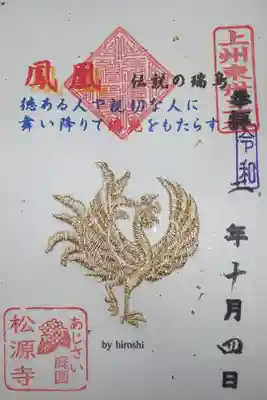 鳳凰 伝説の瑞鳥
徳ある人や親切な人に
舞い降りて
をもたらす
上州
奉拝
令和二年十月四日
by hiroshi
あじさい庭園
松源寺